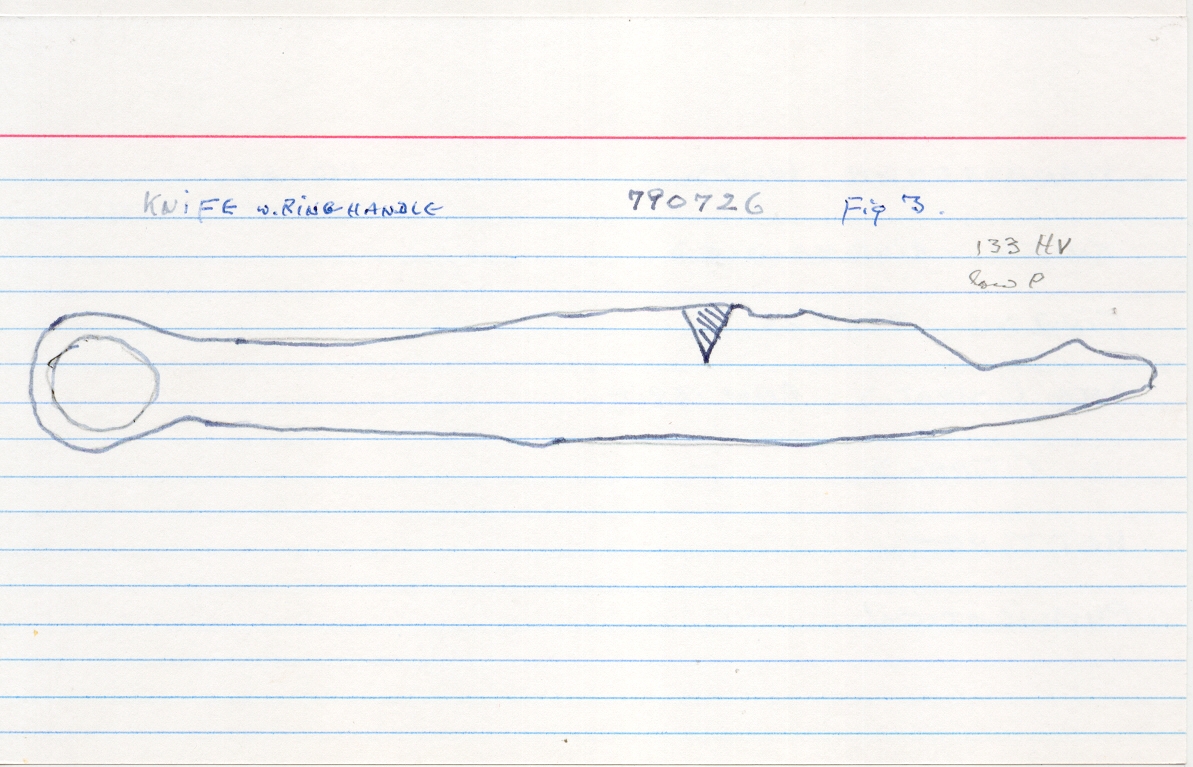 KNiFE w. RING HANDLE 790726 Fig 3.
133 HV
low P